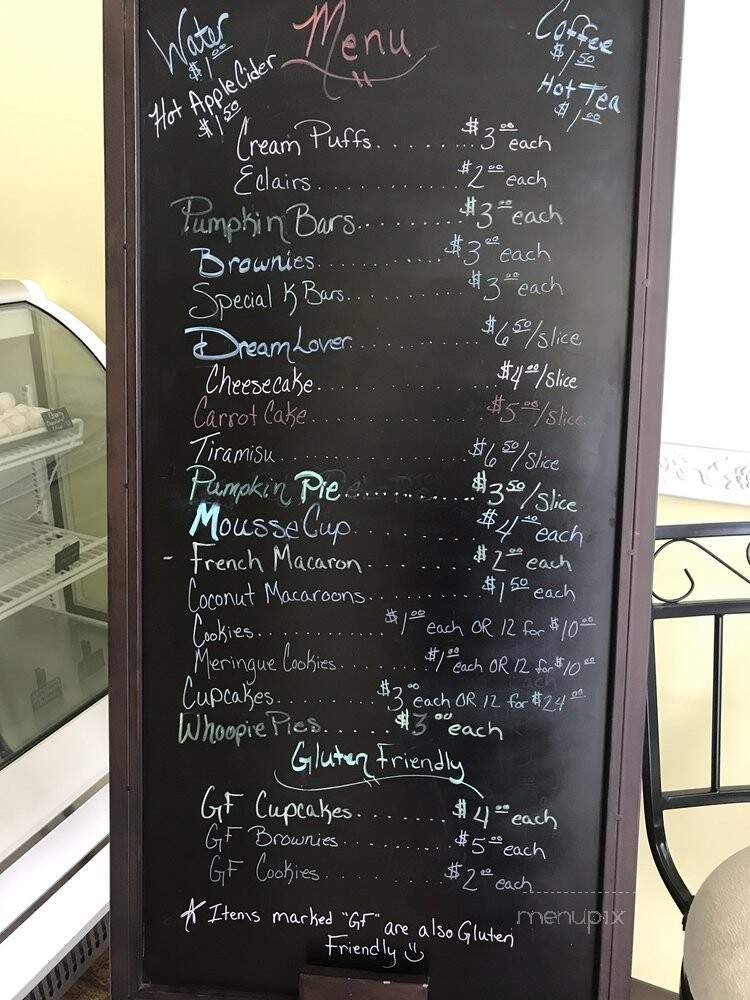 Menu
Water
$1.00
Hot Apple Cider
$1.50
Coffee
$1.50
Hot Tea
$1.00
Cream Puffs....... $3.00 each
Eclairs............. $2.00 each
Pumpkin Bars......... $3.00 each
Brownies........... $3.00 each
Special K Bars......... $3.00 each
DreamLover........... $6.50/slice
Cheesecake............. $4.00/slice
Carrot Cake............. $5.00/slice
Tiramisu............. $6.50/slice
Pumpkin Pie............. $3.50/slice
Mousse Cup........... $4.00 each
- French Macaron......... $2.00 each
Coconut Macaroons......... $1.50 each
Cookies........... $1.00 each OR 12 for $10.00
Meringue Cookies....... $1.00 each OR 12 for $10.00
Cupcakes......... $3.00 each OR 12 for $24.00
Whoopie Pies...... $3.00 each
Gluten Friendly
GF Cupcakes......... $4.00 each
GF Brownies......... $5.00 each
GF Cookies........... $2.00 each
* Items marked "GF" are also Gluten
Friendly
menupix